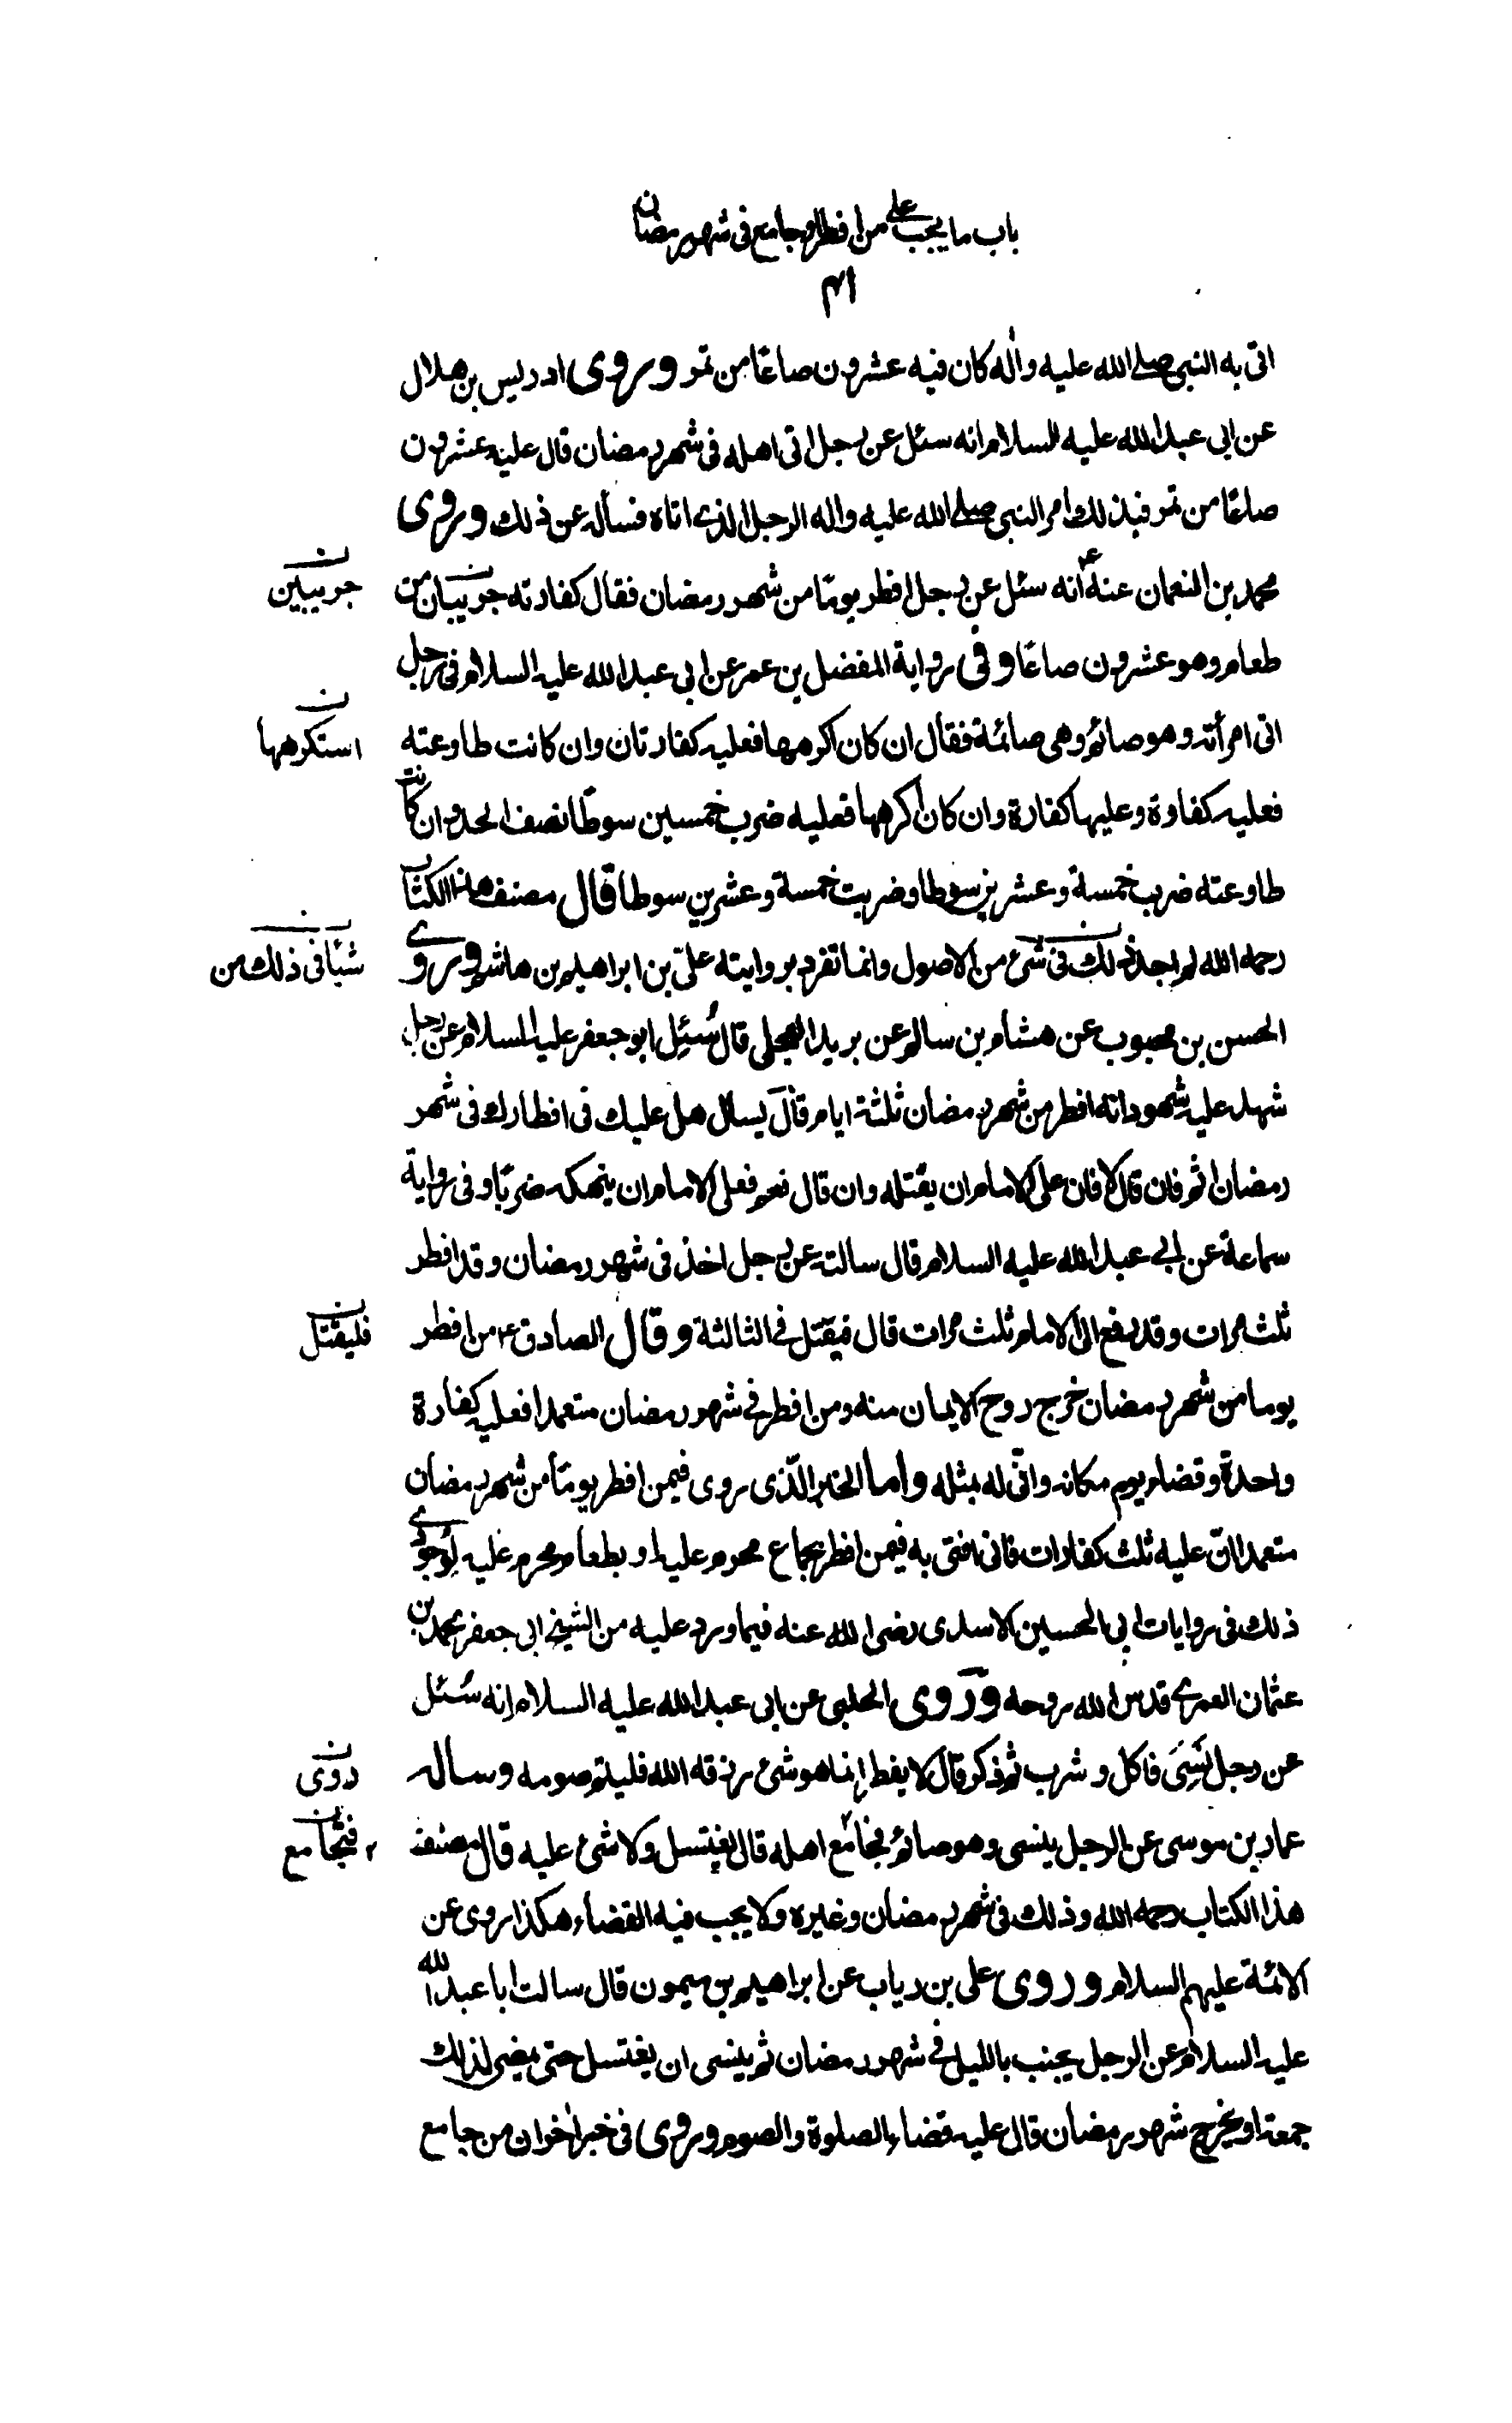 باب ما يجب على من افطر او جامع فى شهر رمضان
٤١
اتى به النبى صلى الله عليه واٰله كان فيه عشرون صاعًا من تمر وروى ادريس بن هلال
عن ابى عبد الله عليه السلام انه سئل عن رجل اتى اهله فى شهر رمضان قال عليه عشرون
صاعًا من تمر فبذلك امر النبى صلى الله عليه واله الرجل الذى اتاه فسأله عن ذلك وروى
محمد بن النعمان عنه ع أنه سئل عن رجل افطر يومًا من شهر رمضان فقال كفارته جريبان من
جريبين
طعام وهو عشرون صاعًا وفى رواية المفضل بن عمر عن ابى عبد الله عليه السلام فى رجل
اتى امرأته وهو صائم وهى صائمة فقال ان كان اكرهها فعليه كفارتان وان كانت طاوعته
استكرهها
فعليه كفارة وعليها كفارة وان كان اكرهها فعليه ضرب خمسين سوطًا نصف الحد وان كانت
طاوعته ضرب خمسة وعشرين سوطا وضربت خمسة وعشرين سوطا قال مصنف هذا الكتاب
رحمه الله لم اجد ذلك فى شئ من الاصول وانما تفرد بروايته علىّ بن ابراهيم بن هاشم وروى
شيأ فى ذلك من
الحسن بن محبوب عن هشام بن سالم عن بريد العجلى قال سُئِل ابو جعفر عليه السلام عن رجل
شهد عليه شهود انه افطر من شهر رمضان ثلثة ايام قال يسال هل عليك فى افطارك فى شهر
رمضان اثم فان قال لا فان على الامام ان يقتله وان قال نعم فعلى الامام ان ينهكه ضربًا وفى رواية
سماعة عن ابى عبد الله عليه السلام قال سالته عن رجل اخذ فى شهر رمضان وقد افطر
ثلث مرات وقد رفع الى الامام ثلث مرات قال فيقتل فى الثالثة وقال الصادق ع من افطر
فليقتل
يوما من شهر رمضان خرج روح الايمان منه ومن افطر فى شهر رمضان متعمدا فعليه كفارة
واحدة وقضاء يوم مكانه وانّى له بمثله واما الخبر الّذى روى فيمن افطر يومًا من شهر رمضان
متعمدا انّ عليه ثلث كفارات فانى افتى به فيمن افطر بجماع محرم عليه او بطعام محرم عليه لوجود
ذلك فى روايات ابى الحسين الاسدى رضى الله عنه فيما ورد عليه من الشيخ ابى جعفر محمد بن
عثمان العمرى قدس الله روحه وروى الحلبى عن ابى عبد الله عليه السلام انه سُئل
عن رجل نَسِىَ فاكل وشرب ثم ذكر قال لا يفطر انما هو شئ رزقه الله فليتم صومه وساله
روى
عمار بن موسى عن الرجل ينسى وهو صائم فجامع اهله قال يغتسل ولا شئ عليه قال مصنف
فيجامع
هذا الكتاب رحمه الله وذلك فى شهر رمضان وغيره ولا يجب فيه القضاء هكذا روى عن
الائمة عليهم السلام وروى على بن رياب عن ابراهيم بن ميمون قال سالت ابا عبد الله
عليه السلام عن الرجل يجنب بالليل فى شهر رمضان ثم ينسى ان يغتسل حتى يمضى لذلك
جمعة او يخرج شهر رمضان قال عليه قضاء الصلوة والصوم وروى فى خبر اٰخر ان من جامع